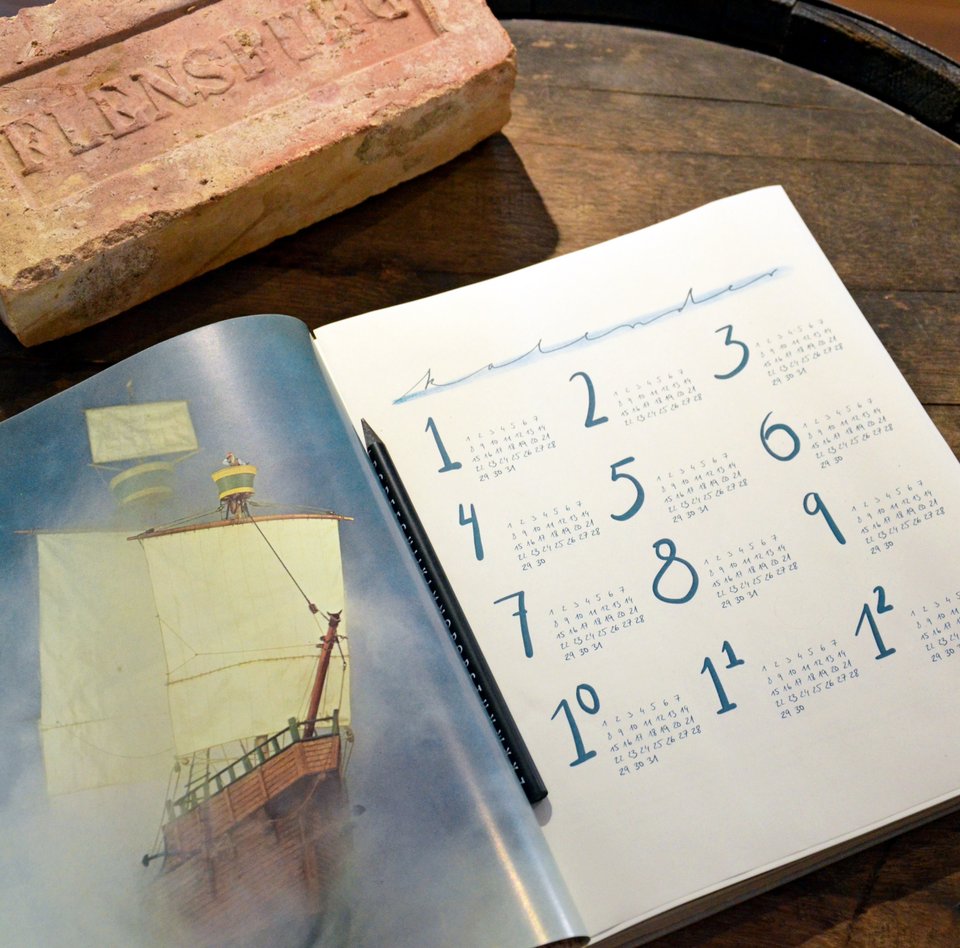 FLENSBURG
kalender
1
1 2 3 4 5 6 7
8 9 10 11 12 13 14
15 16 17 18 19 20 21
22 23 24 25 26 27 28
29 30 31
2
1 2 3 4 5 6 7
8 9 10 11 12 13 14
15 16 17 18 19 20 21
22 23 24 25 26 27 28
3
1 2 3 4 5 6 7
8 9 10 11 12 13 14
15 16 17 18 19 20 21
22 23 24 25 26 27 28
29 30 31
4
1 2 3 4 5 6 7
8 9 10 11 12 13 14
15 16 17 18 19 20 21
22 23 24 25 26 27 28
29 30
5
1 2 3 4 5 6 7
8 9 10 11 12 13 14
15 16 17 18 19 20 21
22 23 24 25 26 27 28
29 30 31
6
1 2 3 4 5 6 7
8 9 10 11 12 13 14
15 16 17 18 19 20 21
22 23 24 25 26 27 28
29 30
7
1 2 3 4 5 6 7
8 9 10 11 12 13 14
15 16 17 18 19 20 21
22 23 24 25 26 27 28
29 30 31
8
1 2 3 4 5 6 7
8 9 10 11 12 13 14
15 16 17 18 19 20 21
22 23 24 25 26 27 28
29 30 31
9
1 2 3 4 5 6 7
8 9 10 11 12 13 14
15 16 17 18 19 20 21
22 23 24 25 26 27 28
29 30
10
1 2 3 4 5 6 7
8 9 10 11 12 13 14
15 16 17 18 19 20 21
22 23 24 25 26 27 28
29 30 31
11
1 2 3 4 5 6 7
8 9 10 11 12 13 14
15 16 17 18 19 20 21
22 23 24 25 26 27 28
29 30
12
1 2 3 4 5
8 9 10 11
15 16 17 18
22 23 24
29 30